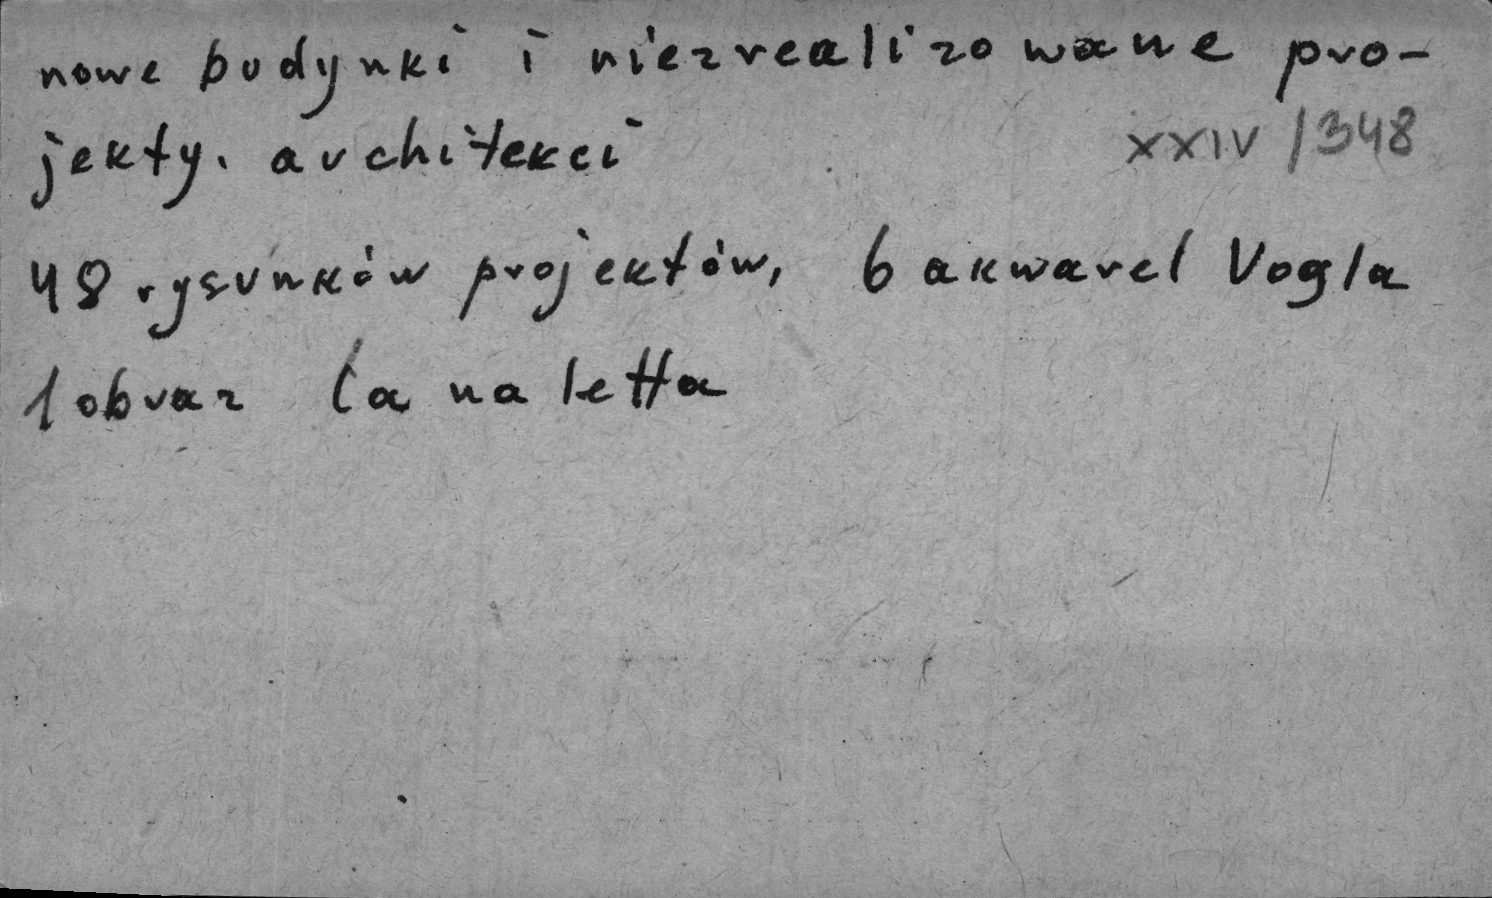 nowe budynki i niezrealizowane pro-
jekty. architekci
XXIV/348
48 rysunków projektów, 6 akwarel Vogla
1 obraz Canaletta